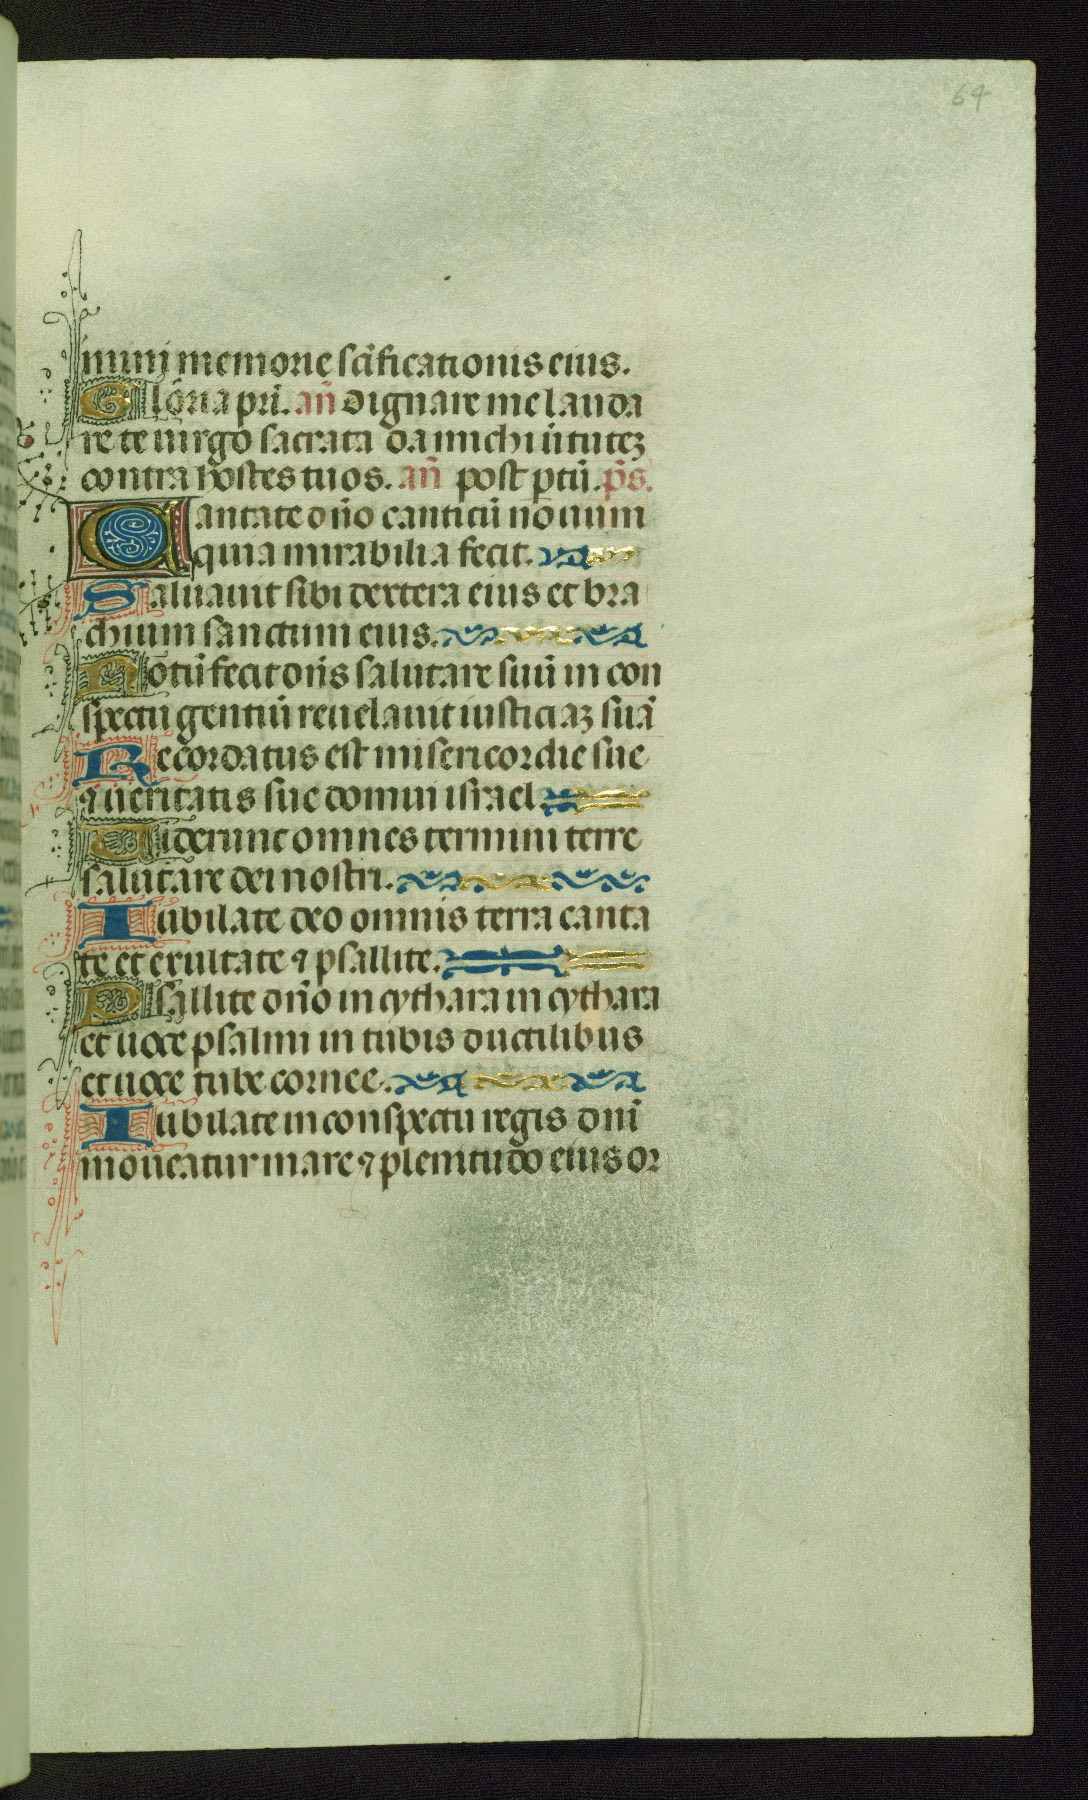 64
mini memorie sc̄ificationis eius.
Gloria pr̄i. an̄ Dignare me lauda
re te uirgo sacrata da michi ūtuteꝫ
contra hostes tuos. an̄ post ptū. p̄s.
Cantate dn̄o canticū nouum
quia mirabilia fecit.
Saluauit sibi dextera eius et bra
chium sanctum eius.
Notū fecit dn̄s salutare suū in con
spectu gentiū reuelauit iusticiaꝫ suā
Recordatus est misericordie sue
⁊ ueritatis sue domui israel.
Uiderunt omnes termini terre
salutare dei nostri.
Iubilate deo omnis terra canta
te et exultate ⁊ psallite.
Psallite dn̄o in cythara in cythara
et uoce psalmi in tubis ductilibus
et uoce tube cornee.
Iubilate in conspectu regis dn̄i
moueatur mare ⁊ plenitudo eius or